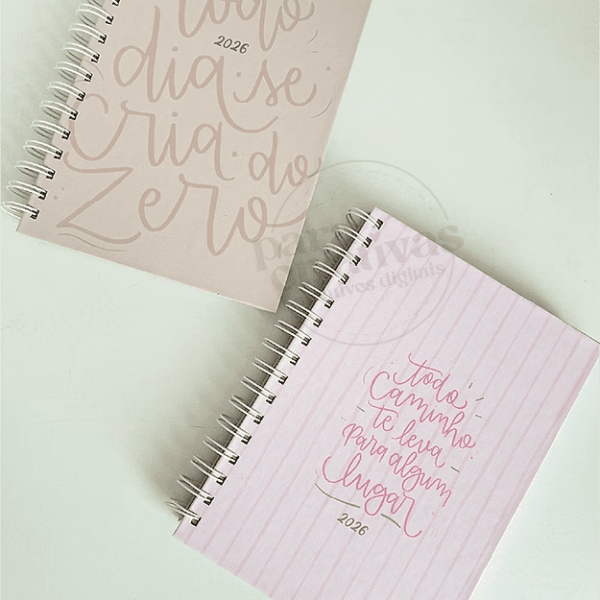 todo
2026
dia se
cria do
zero
para
criativas
arquivos digitais
todo
caminho
te leva
para algum
lugar
2026